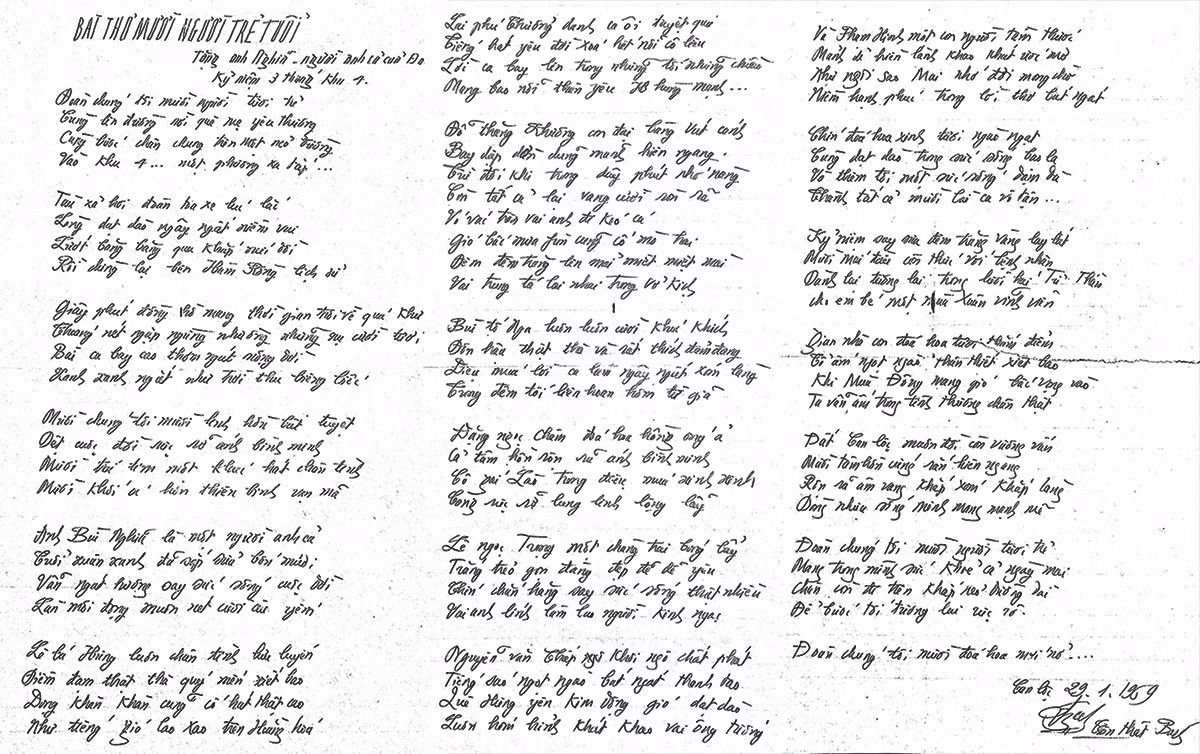 BÀI THƠ MƯỜI NGƯỜI TRẺ TUỔI
Tặng anh Nghĩa - người anh cả của Đoàn
Kỷ niệm 3 tháng khu 4.
Đoàn chúng tôi mười người tươi trẻ
Cùng lên đường nơi quê mẹ yêu thương
Cùng bước chân chung trên một nẻo đường
Vào khu 4... một phương xa tắp...
Tàu xả hơi đoàn ba xe lúc lắc
Lòng dạt dào ngây ngất niềm vui
Lướt băng băng qua khắp núi đồi
Rồi dừng lại bên Hàm Rồng lịch sử
Giây phút đồng hồ mang thời gian trôi về quá khứ
Thoáng nét ngập ngừng nhường những nụ cười tươi
Bài ca bay cao thơm ngát nồng đời
Xanh xanh ngát như trời thu biêng biếc
Mười chúng tôi mười linh hồn bất tuyệt
Dệt cuộc đời rực rỡ ánh bình minh
Mười trái tim một khúc hát chân tình
Mười khối óc hồn thiên bình van mẫ
Anh Bùi Nghĩa là một người anh cả
Tuổi xuân xanh đã sắp nửa bốn mươi
Vẫn ngạt hương say sức sống cuộc đời
Làn môi đọng muôn nét cười âu yếm
Lê bá Hùng luôn chân tình lưu luyến
Điềm đạm thật thà quý mến xiết bao
Dong khàn khàn cũng cố hát thật cao
Như tiếng gió lao xao trên Hoàng hoá
Lại phú Thưởng danh ca ôi tuyệt quá
Tiếng hát yêu đời xoá hết nỗi cô liêu
Lời ca bay lên trong những tối những chiều
Mang bao nỗi thân yêu hùng mạnh...
Đỗ thăng Thưởng con đại bàng vút cánh
Bay dập dờn dũng mãnh hiên ngang.
Tuy đôi khi trong dãy phút mơ màng
Còn tất cả lại vang cười sôi sả
Vỗ vai trò vai anh đi kéo cá
Gió bấc mưa phùn cũng cố mò trai
Đêm đêm trăng lên mải miết miệt mài
Vai trung tá lại nhai trong vở kịch
Bùi tố Nga luôn luôn cười khúc khích
Đôn hậu thật thà và rất thích đảm đang
Điệu múa lời ca làm ngây ngất xóm làng
Trong đêm tối liên hoan hôm từ giã
Đặng ngọc Châm đoá hoa hồng óng ả
Cả tâm hồn rộn rã ánh bình minh
Cô gái Lào trong điệu múa xinh xinh
Càng rực rỡ lung linh lộng lẫy
Lê ngọc Trọng một chàng trai bóng bẩy
Trắng trẻo gọn gàng đẹp đẽ dễ yêu
Chín chắn hăng say sức sống thật nhiều
Vai anh lính làm lắm người kinh ngạc
Nguyễn văn Thấp ngô khôi ngô chất phát
Tiếng sáo ngọt ngào bát ngát thanh tao
Quê Hưng yên Kim Động gió dạt dào
Luôn hóm hỉnh khát khao vai ông tướng
Và Phạm Hinh một con người tâm tưởng
Mảnh dẻ hiền lành khao khát ước mơ
Như ngôi sao Mai nhớ đời mong chờ
Niềm hạnh phúc trong lời thơ bát ngát
Chín đoá hoa xinh tươi ngào ngạt
Cùng dạt dào trong sức sống bao la
Và thêm tôi một sức sống đậm đà
Thành tất cả mười lời ca vô tận...
Kỷ niệm say sưa đêm trăng vàng lay lất
Mười mái đầu còn thức với bệnh nhân
Dành lại tương lai trong lưỡi hái Tử Thần
cho em bé một mùa Xuân vĩnh viễn
Gian nhà con đoá hoa tươi điểm
Êm ấm ngọt ngào thân thiết xiết bao
Khi Mùa Đông mang gió bấc vọng vào
Ta vẫn ấm trong tình thương chân thật
Đất Can lộc muôn đời còn vương vấn
Mười tâm hồn cứng rắn hiên ngang
Rộn rã âm vang khắp xóm khắp làng
Dòng nhựa sống mênh mang mạnh mẽ
Đoàn chúng tôi mười người tươi trẻ
Mang trong mình sức khoẻ cả ngày mai
Chân còn đi trên khắp nẻo đường dài
Để bước tới tương lai rực rỡ.
Đoàn chúng tôi mười đoá hoa mới nở....
Can lộc 29.1.1959
Tôn thất Bách